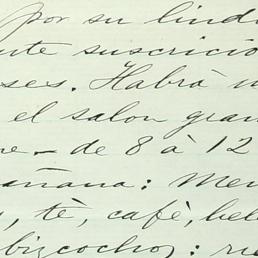 por su lind
nte suscricio
ses. Habrà u
el salon gran
re – de 8 à 12
añana: Men
, tè, cafè, hel
bizcochos: re